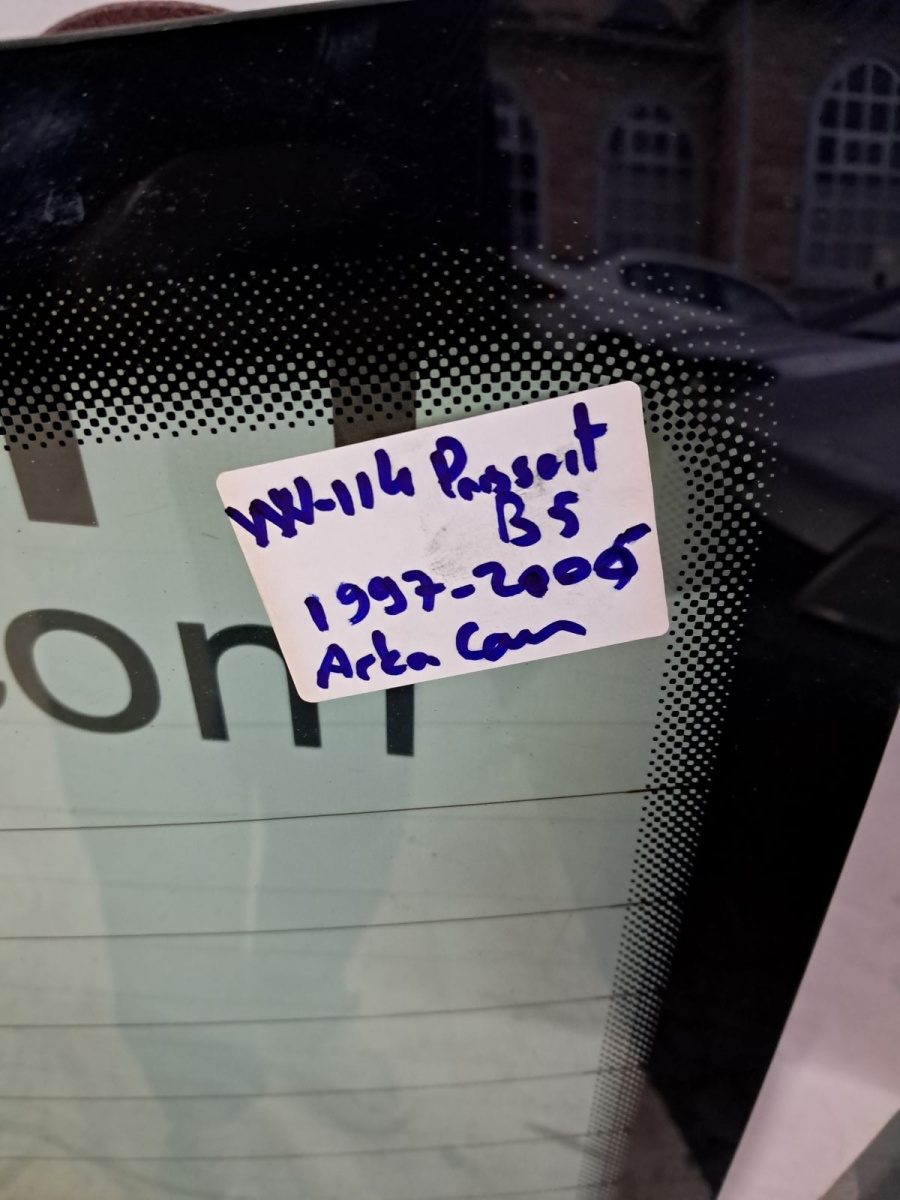 VW-114 Passat
B5
1997-2005
Arka Cam
com